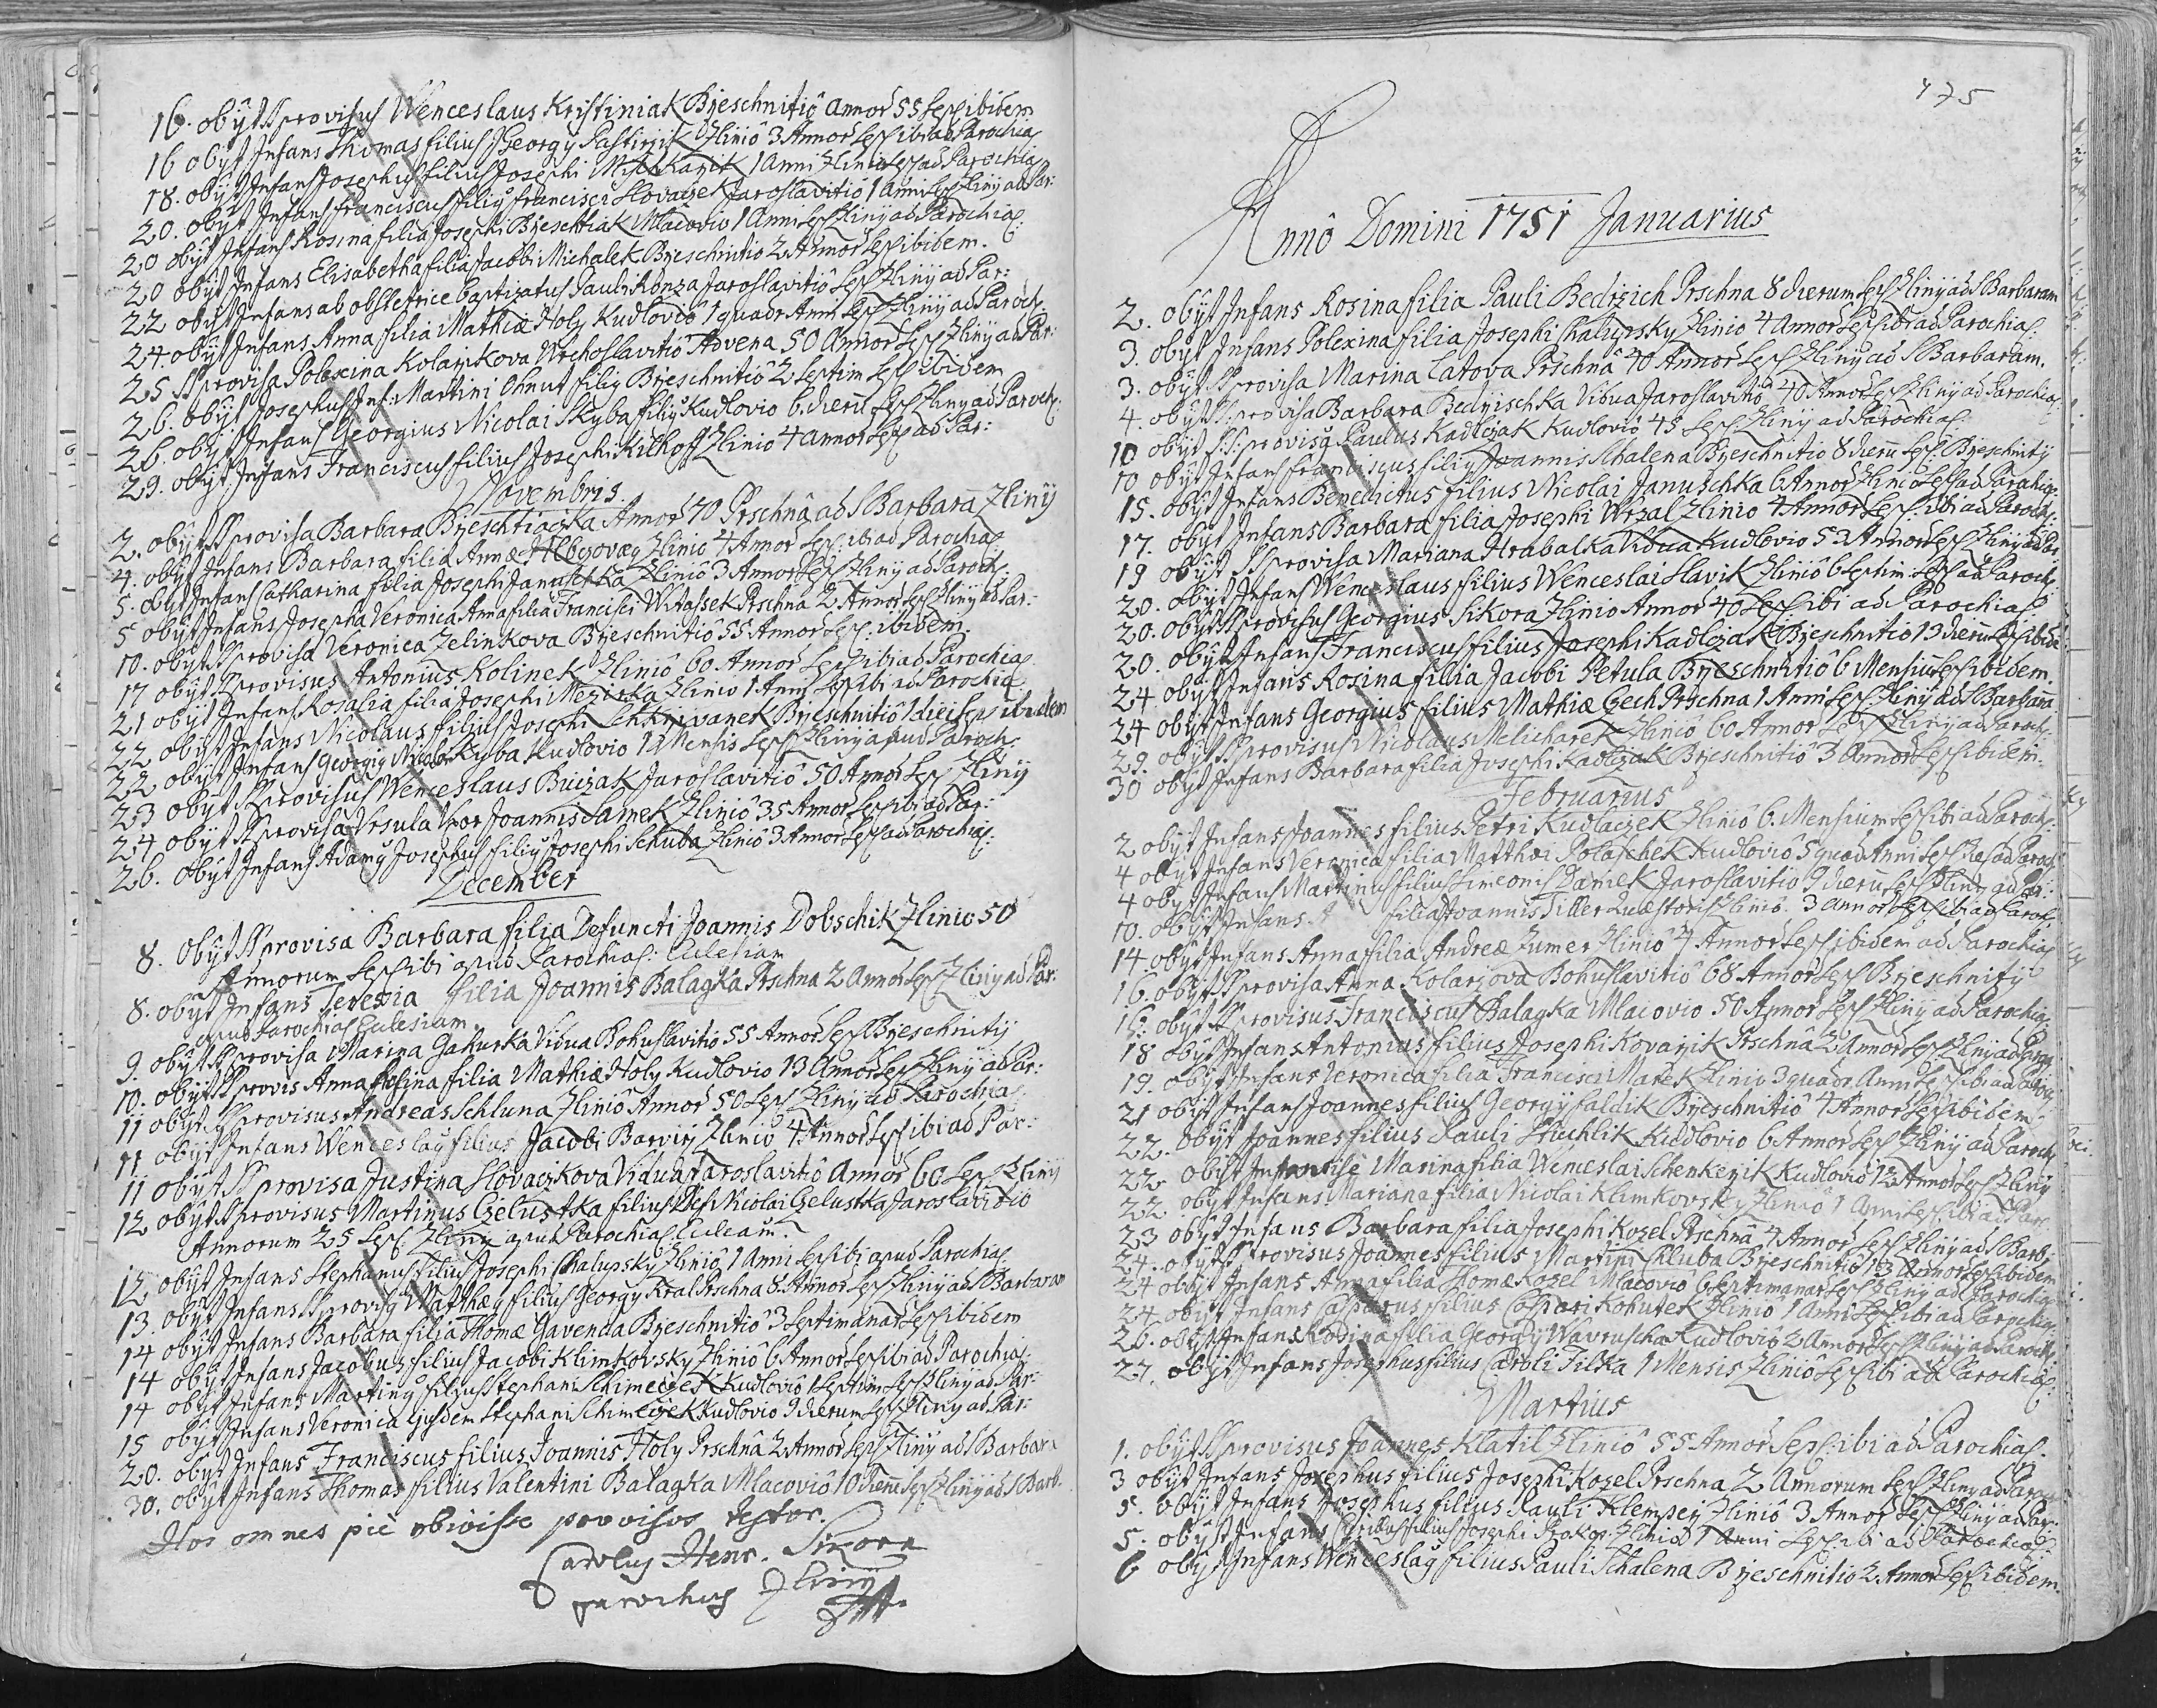 16. obÿt SSprovisus Wenceslaus Kristiniak Brzeschnitiô Annor 55 Sep ibidem
16 obÿt Infans Thomas filius Georgÿ Pastirzik Zliniô 3 Annor Sep ibi ad Parochia
18. obÿt Infans Josephus filius Josephi 1 Anni Zlinio Sep ad Parochia
20. obÿt Infans Franciscus filiꝰ Francisci Slovaczek Jaroslavitiô 1 Anni Sep Zlinÿ ad Par:
20 obÿt Infans Rosina filia Josephi Brzeschtiak Mlacovio 1 Anni Sep Zlinÿ ad Parochia
20 obÿt Infans Elisabetha filia Jacobi Michalek Brzeschnitio 2 Annor Sep ibidem.
22 obÿt Infans ab obstetrice baptizatus Pauli Jaroslavitiô Sep Zlinÿ ad Par:
24. obÿt Infans Anna filia Mathiæ Holy Kudloviô 1 quadr Anni Sep Zlinÿ ad Paroch
25 SSprovisa Polexina Kolarzikova Advena 50 Annor Sep Zlinÿ ad Par:
26. obÿt Josephus Inf: Martini Ohnut filiꝰ Brzeschnitiô 2 Septim Sep ibidem
26. obÿt Infans Georgius Nicolai Skyba filiꝰ Kudlovio 6 dierū Sep Zlinÿ ad Paroch:
29. obÿt Infans Franciscus filius Josephi Kilhoff Zlinio 4 annor Sep ad Par:
Novembris.
2. obÿt SSprovisa Barbara Brzeschtiaczka Annor 70 Prschnâ ad S Barbarā Zlinÿ
4. obÿt Infans Barbara filia Annæ Zlinio 4 Annor Sep: ibi ad Parochia
5. obÿt Infans Catharina filia Josephi Januschka Zliniô 3 Annor Sep Zlinÿ ad Paroch:
5 obÿt Infans Josepha Veronica Anna filia Francisci Witassek Prschna 2 Annor Sep Zlinÿ ad Par:
10. obÿt SSprovisa Veronica Zelinkova Brzeschnitiô 55 Annor Sep: ibidem.
17 obÿt SSprovisus Antonius Kolinek Zliniô 60 Annor Sep ibi ad Parochia
21 obÿt Infans Rosalia filia Josephi Mezirka Zlinio 1 Anni Sep ibi ad Parochia
22 obÿt Infans Nicolaus filius Josephi Brzeschnitiô 1 diei Sep ibidem
22 obÿt Infans Georgiꝰ Nicolai Skyba Kudlovio 1 Mensis Sep Zlinÿ apud Paroch:
23 obÿt SSprovisus Wenceslaus Buczak Jaroslavitiô 50 Annor Sep Zlinÿ
24 obÿt SSprovisa Ursula Uxor Joannis Samek Zliniô 35 Annor Sep ibi ad Par:
26. obÿt Infans Adamꝰ Josephus filiꝰ Josephi Schuba Zliniô 3 Annor Sep ad Parochia:
December
8. obÿt SSprovisa Barbara filia Defuncti Joannis Dobschik Zlinio 50
Annorum Sep ibi apud Parochia: Eclesiam
8. obÿt Infans Teresia filia Joannis Balagka Prschna 2 Annor Sep Zlinÿ ad Par:
apud Parochia Eclesiam
9. obÿt SSprovisa Marina Gakurka Vidua Bohuslavitio 55 Annor Sep Brzeschnitÿ
10. obÿt SSprovis Anna Rosina filia Mathiæ Holy Kudlovio 13 Annor Sep Zlinÿ ad Par:
11 obÿt SSprovisus Andreas Schluna Zliniô Annor 50 Sep Zlinÿ ad Parochia
11 obÿt Infans Wenceslaꝰ filius Jacobi Barvirz Zliniô 4 Annor Sep ibi ad Par:
11 obÿt SSprovisa Justina Slovaczkova Vidua Jaroslavitiô Annor 60 Sep Zlinÿ
12 obÿt SSprovisus Martinus Czelustka filius Def Nicolai Czelustka Jaroslavitio
Annorum 25 Sep Zlinÿ apud Parochia Ecleam.
12 obÿt Infans Stephanus filius Josephi Chalupsky Zliniô 1 Anni Sep ibi apud Parochia
13. obÿt Infans SSprovisꝰ Matthæꝰ filius Georgÿ Kral Prschna 8 Annor Sep Zlinÿ ad S Barbaram
14 obÿt Infans Barbara filia Thomæ Gavenda Brzeschnitiô 3 Septimanar Sep ibidem
14 obÿt Infans Jacobus filius Jacobi Klimkovsky Zliniô 6 Annor Sep ibi ad Parochia:
14 obÿt Infans Martinꝰ filius Stephani Schimeczek Kudloviô 1 Septim Sep Zlinÿ ad Par:
15 obÿt Infans Veronica Ejusdem Stephani Schimeczek Kudlovio 9 dierum Sep Zlinÿ ad Par:
20. obÿt Infans Franciscus filius Joannis Holy Prschnâ 2 Annor Sep Zlinÿ ad S Barbara
30. obÿt Infans Thomas filius Valentini Balagka Mlacoviô 10 dierū Sep Zlinÿ ad S Barb.
Hos omnes piè obivisse provisos testor.
Carolus Henr. Sikora
parochus Zlinÿ
475
Annô Domini 1751 Januarius
2. obÿt Infans Rosina filia Pauli Bedrzich Prschna 8 dierum Sep Zlinÿ ad S Barbaram
3. obÿt Infans Polexina filia Josephi Chalupsky Zlinio 4 Annor Sep ibi ad Parochia:
3. obÿt SSprovisa Marina Latova Prschnâ 70 Annor Sep Zlinÿ ad S Barbaram.
4. obÿt SSprovisa Barbara Bedrzischka Vidua Jaroslavitiô 40 Annor Sep Zlinÿ ad Parochia:
10 obÿt SSprovisꝰ Paulus Kadlczak Kudloviô 45 Sep: Zlinÿ ad Parochia:
10 obÿt Infans Franciscus filiꝰ Joannis Schalena Brzeschnitio 8 dierū Sep: Brzeschnitÿ
15. obÿt Infans Benedictus filius Nicolai Januschka 6 Annor Zlinio Sep ad Parochia
17. obÿt Infans Barbara filia Josephi Wrzal Zlinio 4 Annor Sep: ibi ad Paroch:
19 obÿt SSprovisa Mariana Hrabalka Vidua Kudlovio 53 Annor Sep Zlinÿ ad Par
20. obÿt Infans Wenceslaus filius Wenceslai Slavik Zliniô 6 Septim Sep ad Paroch:
20. obÿt SSprovisus Georgius Sikora Zlinio Annor 40 Sep ibi ad Parochia
20. obÿt Infans Franciscus filius Josephi Kadlczak Brzeschnitio 13 dierū Sep ibidē
24 obÿt Infans Rosina filia Jacobi Petula Brzeschnitiô 6 Mensiū Sep ibidem.
24 obÿt Infans Georgius filius Mathiæ Czech Prschna 1 Anni Sep: Zlinÿ ad S Barbarā
29. obÿt SSprovisus Nicolaus Melicharek Zliniô 60 Annor Sep Zlinÿ ad Paroch:
30 obÿt Infans Barbara filia Josephi Kadlczak Brzeschnitiô 3 Annor Sep ibidem:
Februarius
2 obÿt Infans Joannes filius Petri Kudlaczek Zliniô 6. Mensium Sep ibi ad Paroch:
4 obÿt Infans Veronica filia Matthæi Polaschek Kudloviô 5 quad Anni Sep ad Paroch
4 obÿt Infans Martinus filius Simeonis Damek Jaroslavitio 9 dierū Sep Zlinÿ ad Par:
10. obÿt Infans. filia Joannis Tiller Quæstoris Zliniô. 3 annor Sep ibi ad Paroch
14. obÿt Infans Anna filia Andreæ Zumer Zliniô 4 Annor Sep ibidem ad Parochia
16. obÿt SSprovisa Anna Kolarzova Bohuslavitiô 68 Annor Sep Brzeschnitÿ
16. obÿt SSprovisus Franciscus Balagka Mlacovio 50 Annor Sep Zlinÿ ad Parochia
18 obÿt Infans Antonius filius Josephi Kovarzik Prschnâ 2 Annor Sep Zlinÿ ad Paroch
19. obÿt Infans Veronica filia Francisci Marek Zlinio 3 quadr Anni Sep ibi ad Paroch
21 obÿt Infans Joannes filius Georgÿ Faldik Brzeschnitiô 4 Annor Sep ibidem
22. obÿt Joannes filius Pauli Stuchlik Kudlovio 6 Annor Sep Zlinÿ ad Paroch
22 obÿt Marina filia Wenceslai Schenkerzik Kudloviô 12 Annor Sep Zlinÿ
22 obÿt Infans Mariana filia Nicolai Klimkovsky Zliniô 1 Anni Sep: ibi ad Par:
23 obÿt Infans Barbara filia Josephi Kozel Prschnâ 4 Annor Sep Zlinÿ ad S Barb:
24. obÿt SSprovisus Joannes filius Martini Schluba Brzeschnitiô 13 Annor Sep ibidem
24 obÿt Infans Anna filia Thomæ Kozel Mlacoviô 6 Septimanar Sep Zlinÿ ad Parochia
24. obÿt Infans Casparus filius Caspari Kohutek Zliniô 1 Anni Sep ibi ad Parochia
26. obÿt Infans Rosina filia Georgÿ Wavruscha Kudloviô 2 Annor Sep Zlinÿ ad Paroch
27. obÿt Infans Josephus filius Caroli Tilka 1 Mensis Zliniô Sep ibi ad Parochia:
Martius
1. obÿt SSprovisus Joannes Klatil Zliniô 55 Annor Sep: ibi ad Parochia:
3 obÿt Infans Josephus filius Josephi Kozel Prschna 2 Annorum Sep Zlinÿ ad Paroch
5. obÿt Infans Josephus filius Pauli Zliniô 3 Annor Sep Zlinÿ ad Par:
5. obÿt Infans filius Josephi Zliniô 1 Anni Sep: ibi ad Parochia:
6 obÿt Infans Wenceslaꝰ filius Pauli Schalena Brzeschnitio 2 Annor Sep ibidem.